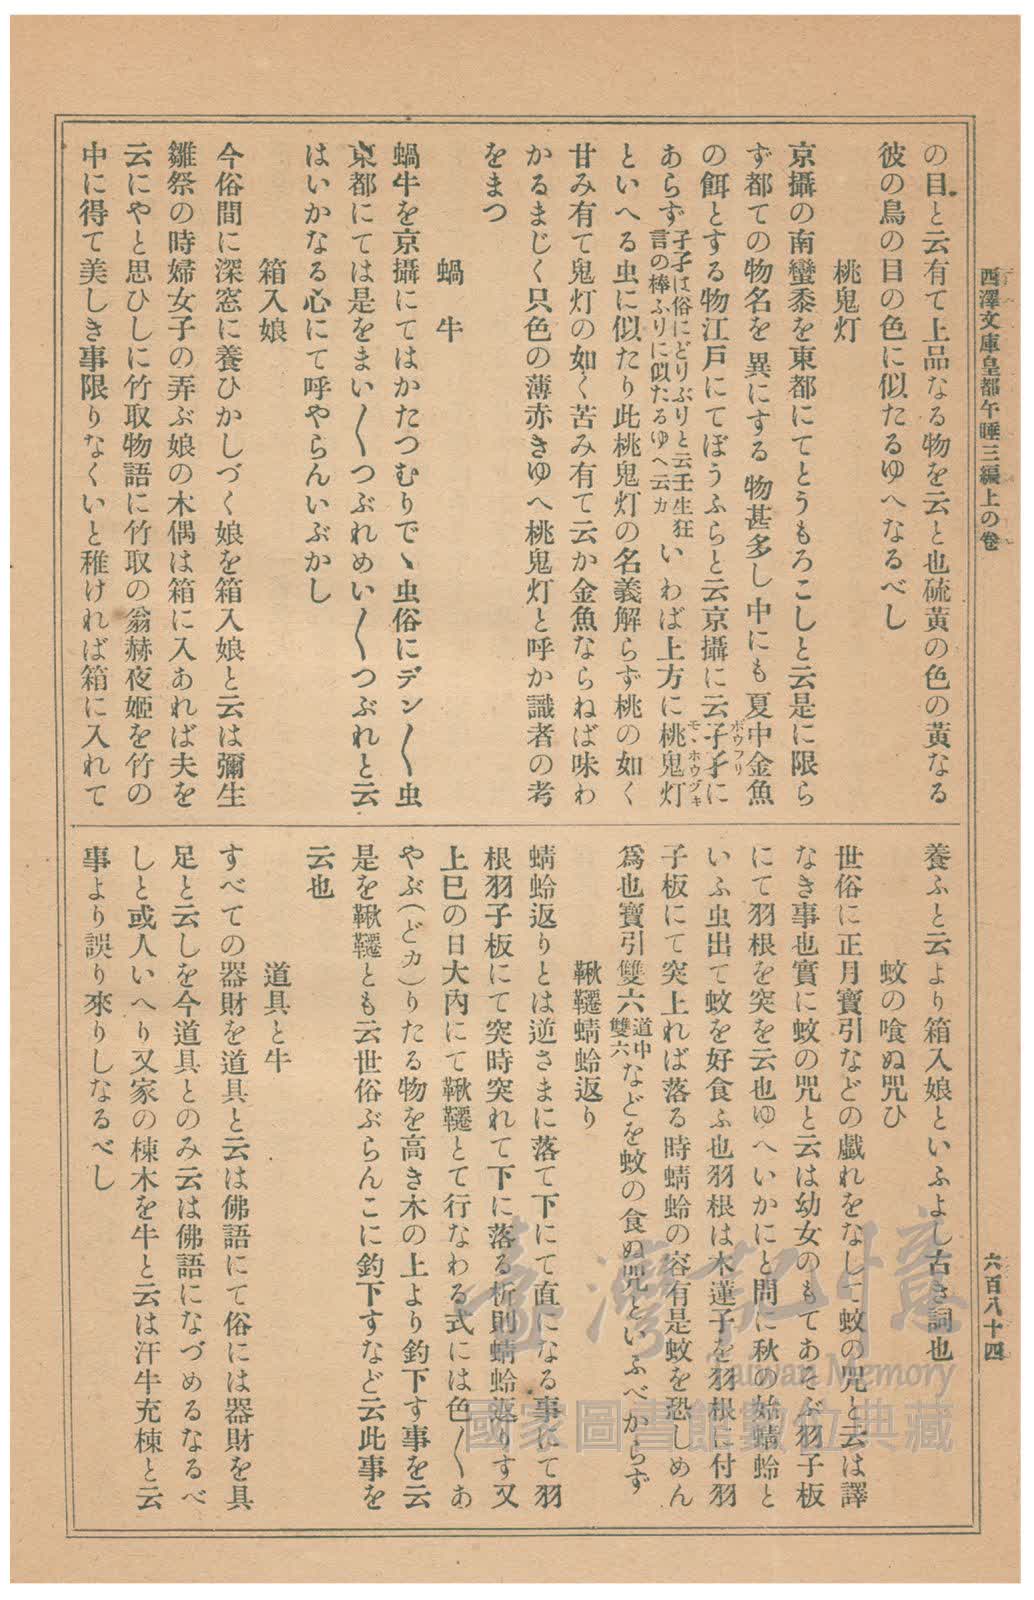 西澤文庫皇都午睡三編上の卷
六百八十四
の目と云有て上品なる物を云と也硫黃の色の黃なる
彼の鳥の目の色に似たるゆへなるべし
桃鬼灯
京攝の南蠻黍を東都にてとうもろこしと云是に限ら
ず都ての物名を異にする物甚多し中にも夏中金魚
の餌とする物江戸にてぼうふらと云京攝に云孑孑(ボウフリ)に
あらず孑孑は俗にどりぶりと云壬生狂言の棒ふりに似たるゆへ云カいわば上方に桃鬼灯(モヽホウヅキ)
といへる虫に似たり此桃鬼灯の名義解らず桃の如く
甘み有て鬼灯の如く苦み有て云か金魚ならねば味わ
かるまじく只色の薄赤きゆへ桃鬼灯と呼か識者の考
をまつ
蝸牛
蝸牛を京攝にてはかたつむりでゝ虫俗にデン〱虫
東都にては是をまい〱つぶれめい〱つぶれと云
はいかなる心にて呼やらんいぶかし
箱入娘
今俗間に深窓に養ひかしづく娘を箱入娘と云は彌生
雛祭の時婦女子の弄ぶ娘の木偶は箱に入あれば夫を
云にやと思ひしに竹取物語に竹取の翁赫夜姫を竹の
中に得て美しき事限りなくいと稚ければ箱に入れて
養ふと云より箱入娘といふよし古き詞也
蚊の喰ぬ咒ひ
世俗に正月寶引などの戲れをなしに蚊の咒と云は譯
なき事也實に蚊の咒と云は幼女のもてあそぶ羽子板
にて羽根を突を云也ゆへいかにと問に秋の始蜻蛉と
いふ虫出て蚊を好食ふ也羽根は木蓮子を羽根に付羽
子板にて突上れば落る時蜻蛉の容有是蚊を恐しめん
爲也寶引雙六道中雙六などを蚊の食ぬ咒といふべからず
鞦韆蜻蛉返り
蜻蛉返りとは逆さまに落て下にて直になる事にて羽
根羽子板にて突時突れて下に落る析則蜻蛉返りす又
上巳の日大內にて鞦韆とて行なわる式には色〱あ
やぶ(どカ)りたる物を高き木の上より釣下す事を云
是を鞦韆とも云世俗ぶらんこに釣下すなど云此事を
云也
道具と牛
すべての器財を道具と云は佛語にて俗には器財を具
足と云しを今道具とのみ云は佛語になづめるなるべ
しと或人いへり又家の棟木を牛と云は汗牛充棟と云
事より誤り來りしなるべし
臺灣記憶
Taiwan Memory
國家圖書館數位典藏